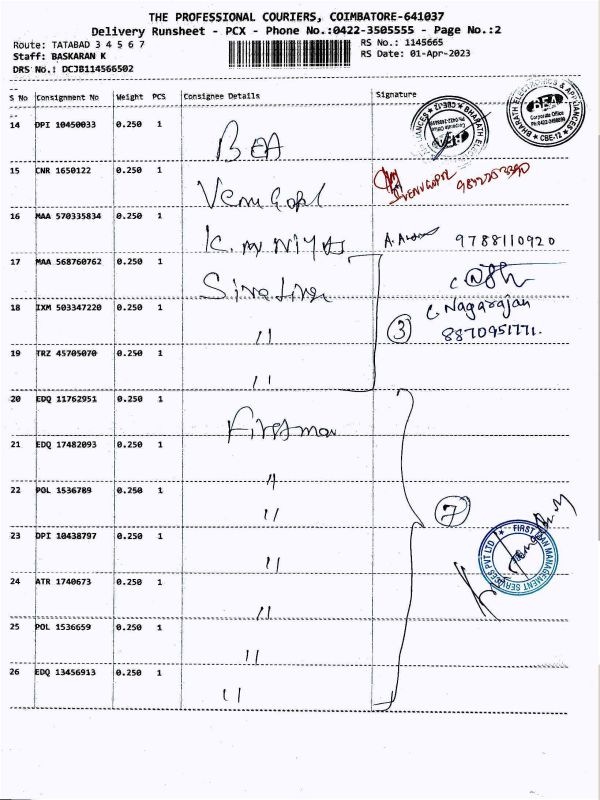 THE PROFESSIONAL COURIERS, COIMBATORE-641037
Delivery Runsheet - PCX - Phone No.:0422-3505555 - Page No.:2
Route: TATABAD 3 4 5 6 7
RS No.: 1145665
Staff: BASKARAN K
RS Date: 01-Apr-2023
DRS No.: DCJB114566502
S No Consignment No Weight PCS Consignee Details Signature
14 DPI 10450033 0.250 1 BEA
BHARATH ELECTRONICS & APPLIANCES
BEA
Corporate Office
CBE-12
15 CNR 1650122 0.250 1 Venu Gopl
VENUGOPL
16 MAA 570335834 0.250 1 K. M NIYAS 9788110920
17 MAA 568760762 0.250 1
C. Nagarajan
18 IXM 503347220 0.250 1 " 3 8870951771.
19 TRZ 45705070 0.250 1 "
20 EDQ 11762951 0.250 1 Firstman
21 EDQ 17482093 0.250 1 "
22 POL 1536789 0.250 1 " 7
23 DPI 10438797 0.250 1 "
FIRST MAN MANAGEMENT SERVICES PVT LTD
24 ATR 1740673 0.250 1 "
25 POL 1536659 0.250 1 "
26 EDQ 13456913 0.250 1 "